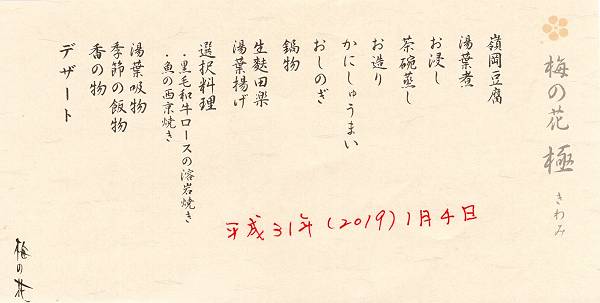 梅の花 極 きわみ
嶺岡豆腐
湯葉煮
お浸し
茶碗蒸し
お造り
かにしゅうまい
おしのぎ
鍋物
生麩田楽
湯葉揚げ
選択料理
・黒毛和牛ロースの溶岩焼き
・魚の西京焼き
湯葉吸物
季節の飯物
香の物
デザート
平成31年(2019)1月4日
梅の花